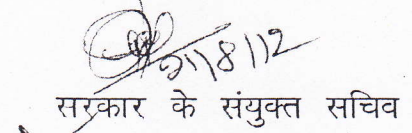 21/8/12
सरकार के संयुक्त सचिव